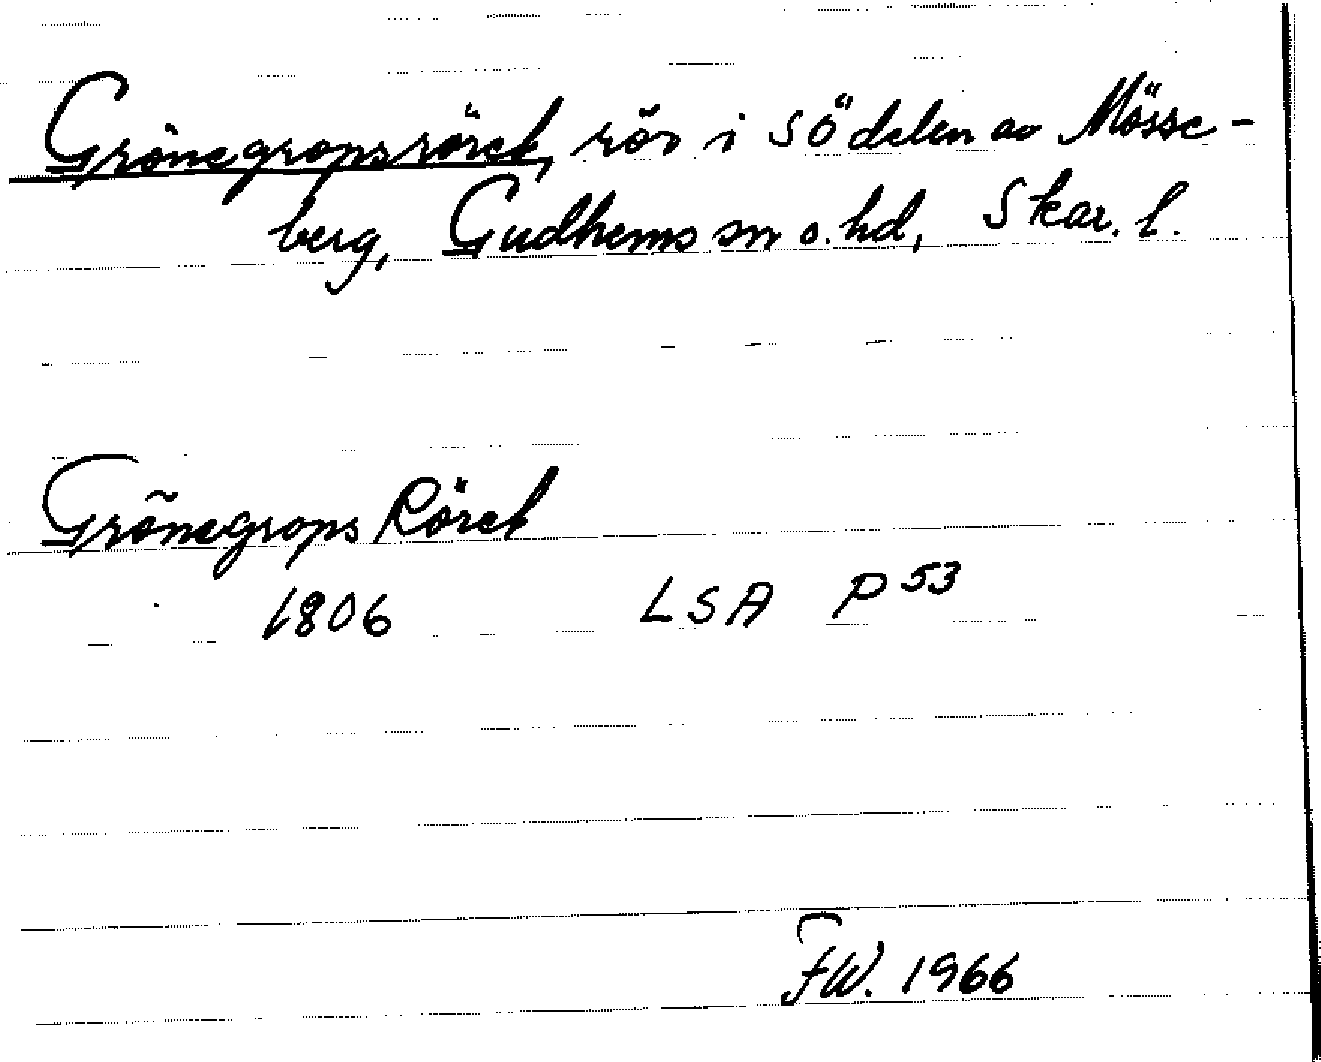 Grönegropsröret, rör i SÖ delen av Mösse-
berg, Gudhems sn o. hd, Skar. l.
Grönegrops Röret
1806 LSA P 53
FW. 1966